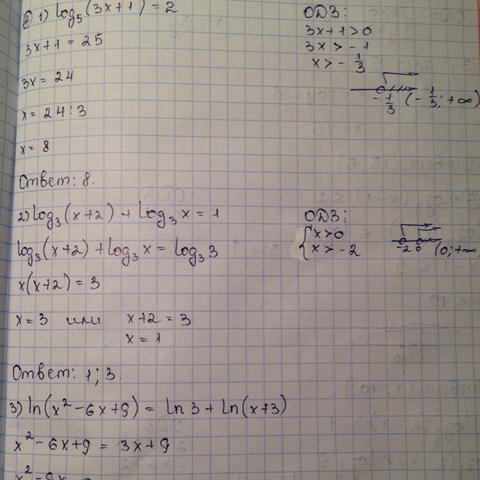 1) log₅(3x+1) = 2
3x+1 = 25
3x = 24
x = 24 : 3
x = 8
Ответ: 8.
ОДЗ:
3x+1>0
3x > -1
x > - 1/3
- 1/3 (- 1/3; +∞)
2) log₃(x+2) + log₃ x = 1
log₃(x+2) + log₃ x = log₃ 3
x(x+2) = 3
x = 3 или x+2 = 3
x = 1
Ответ: 1; 3.
ОДЗ:
{ x>0
x > -2
-2 0 (0; +∞
3) ln(x² - 6x + 9) = ln 3 + ln(x+3)
x² - 6x + 9 = 3x + 9